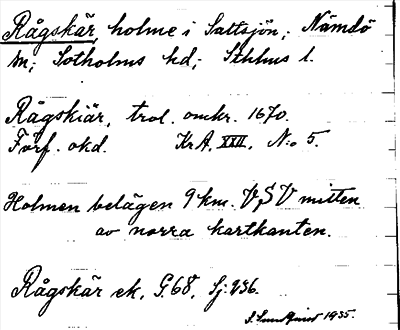 Rågskär, holme i Saltsjön; Nämdö
sn; Sotholms hd; Sthlms l.
Rågskiär, trol. omkr. 1670.
Förf. okd. KrA. XXII, N:o 5.
Holmen belägen 9 km. VSV mitten
av norra kartkanten.
Rågskär ek. G. 68, Sj. 236.
1935.